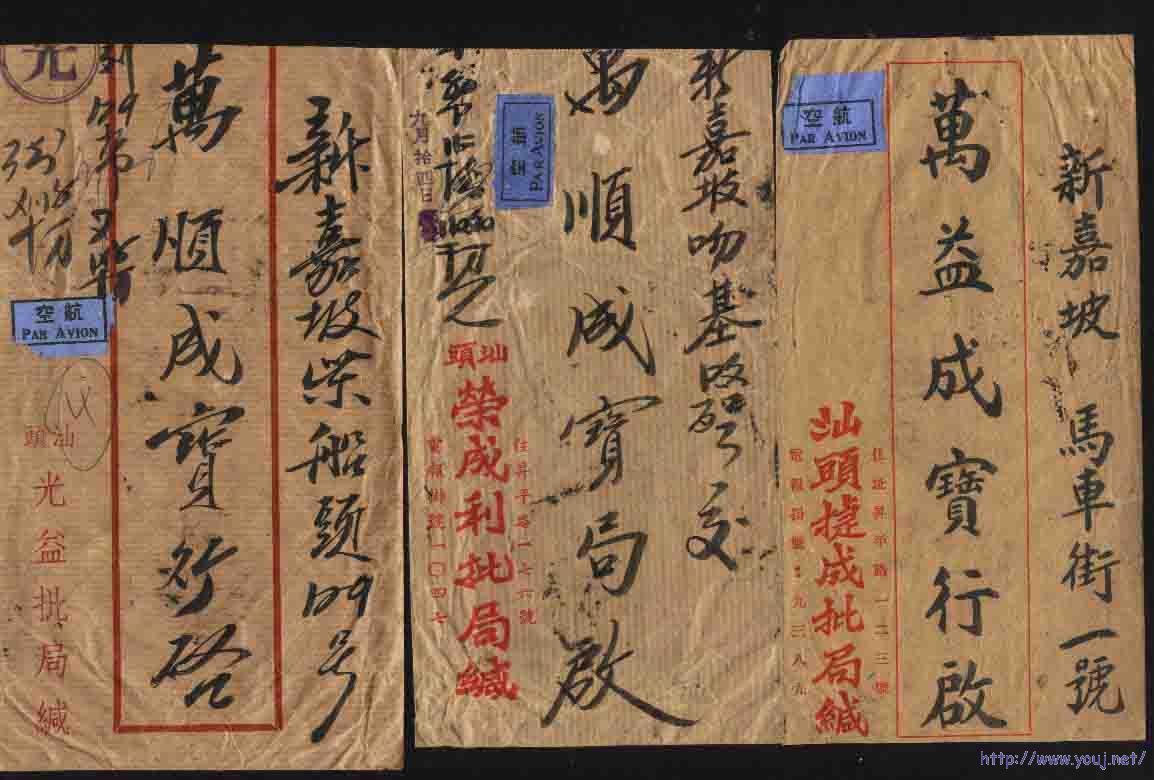 新嘉坡馬車街一號
萬益成寶行啟
航空
PAR AVION
住址昇平路一二三號
汕頭捷成批局緘
電報掛號:九三八九
新嘉坡吻基
交
萬順成寶局啟
航空
PAR AVION
九月拾四日
汕頭
住昇平路一七六號
榮成利批局緘
電報掛號一〇四七
新嘉坡柴船頭129号
萬順成寶行啓
光
航空
PAR AVION
汕頭
光益批局緘
http://www.youj.net/